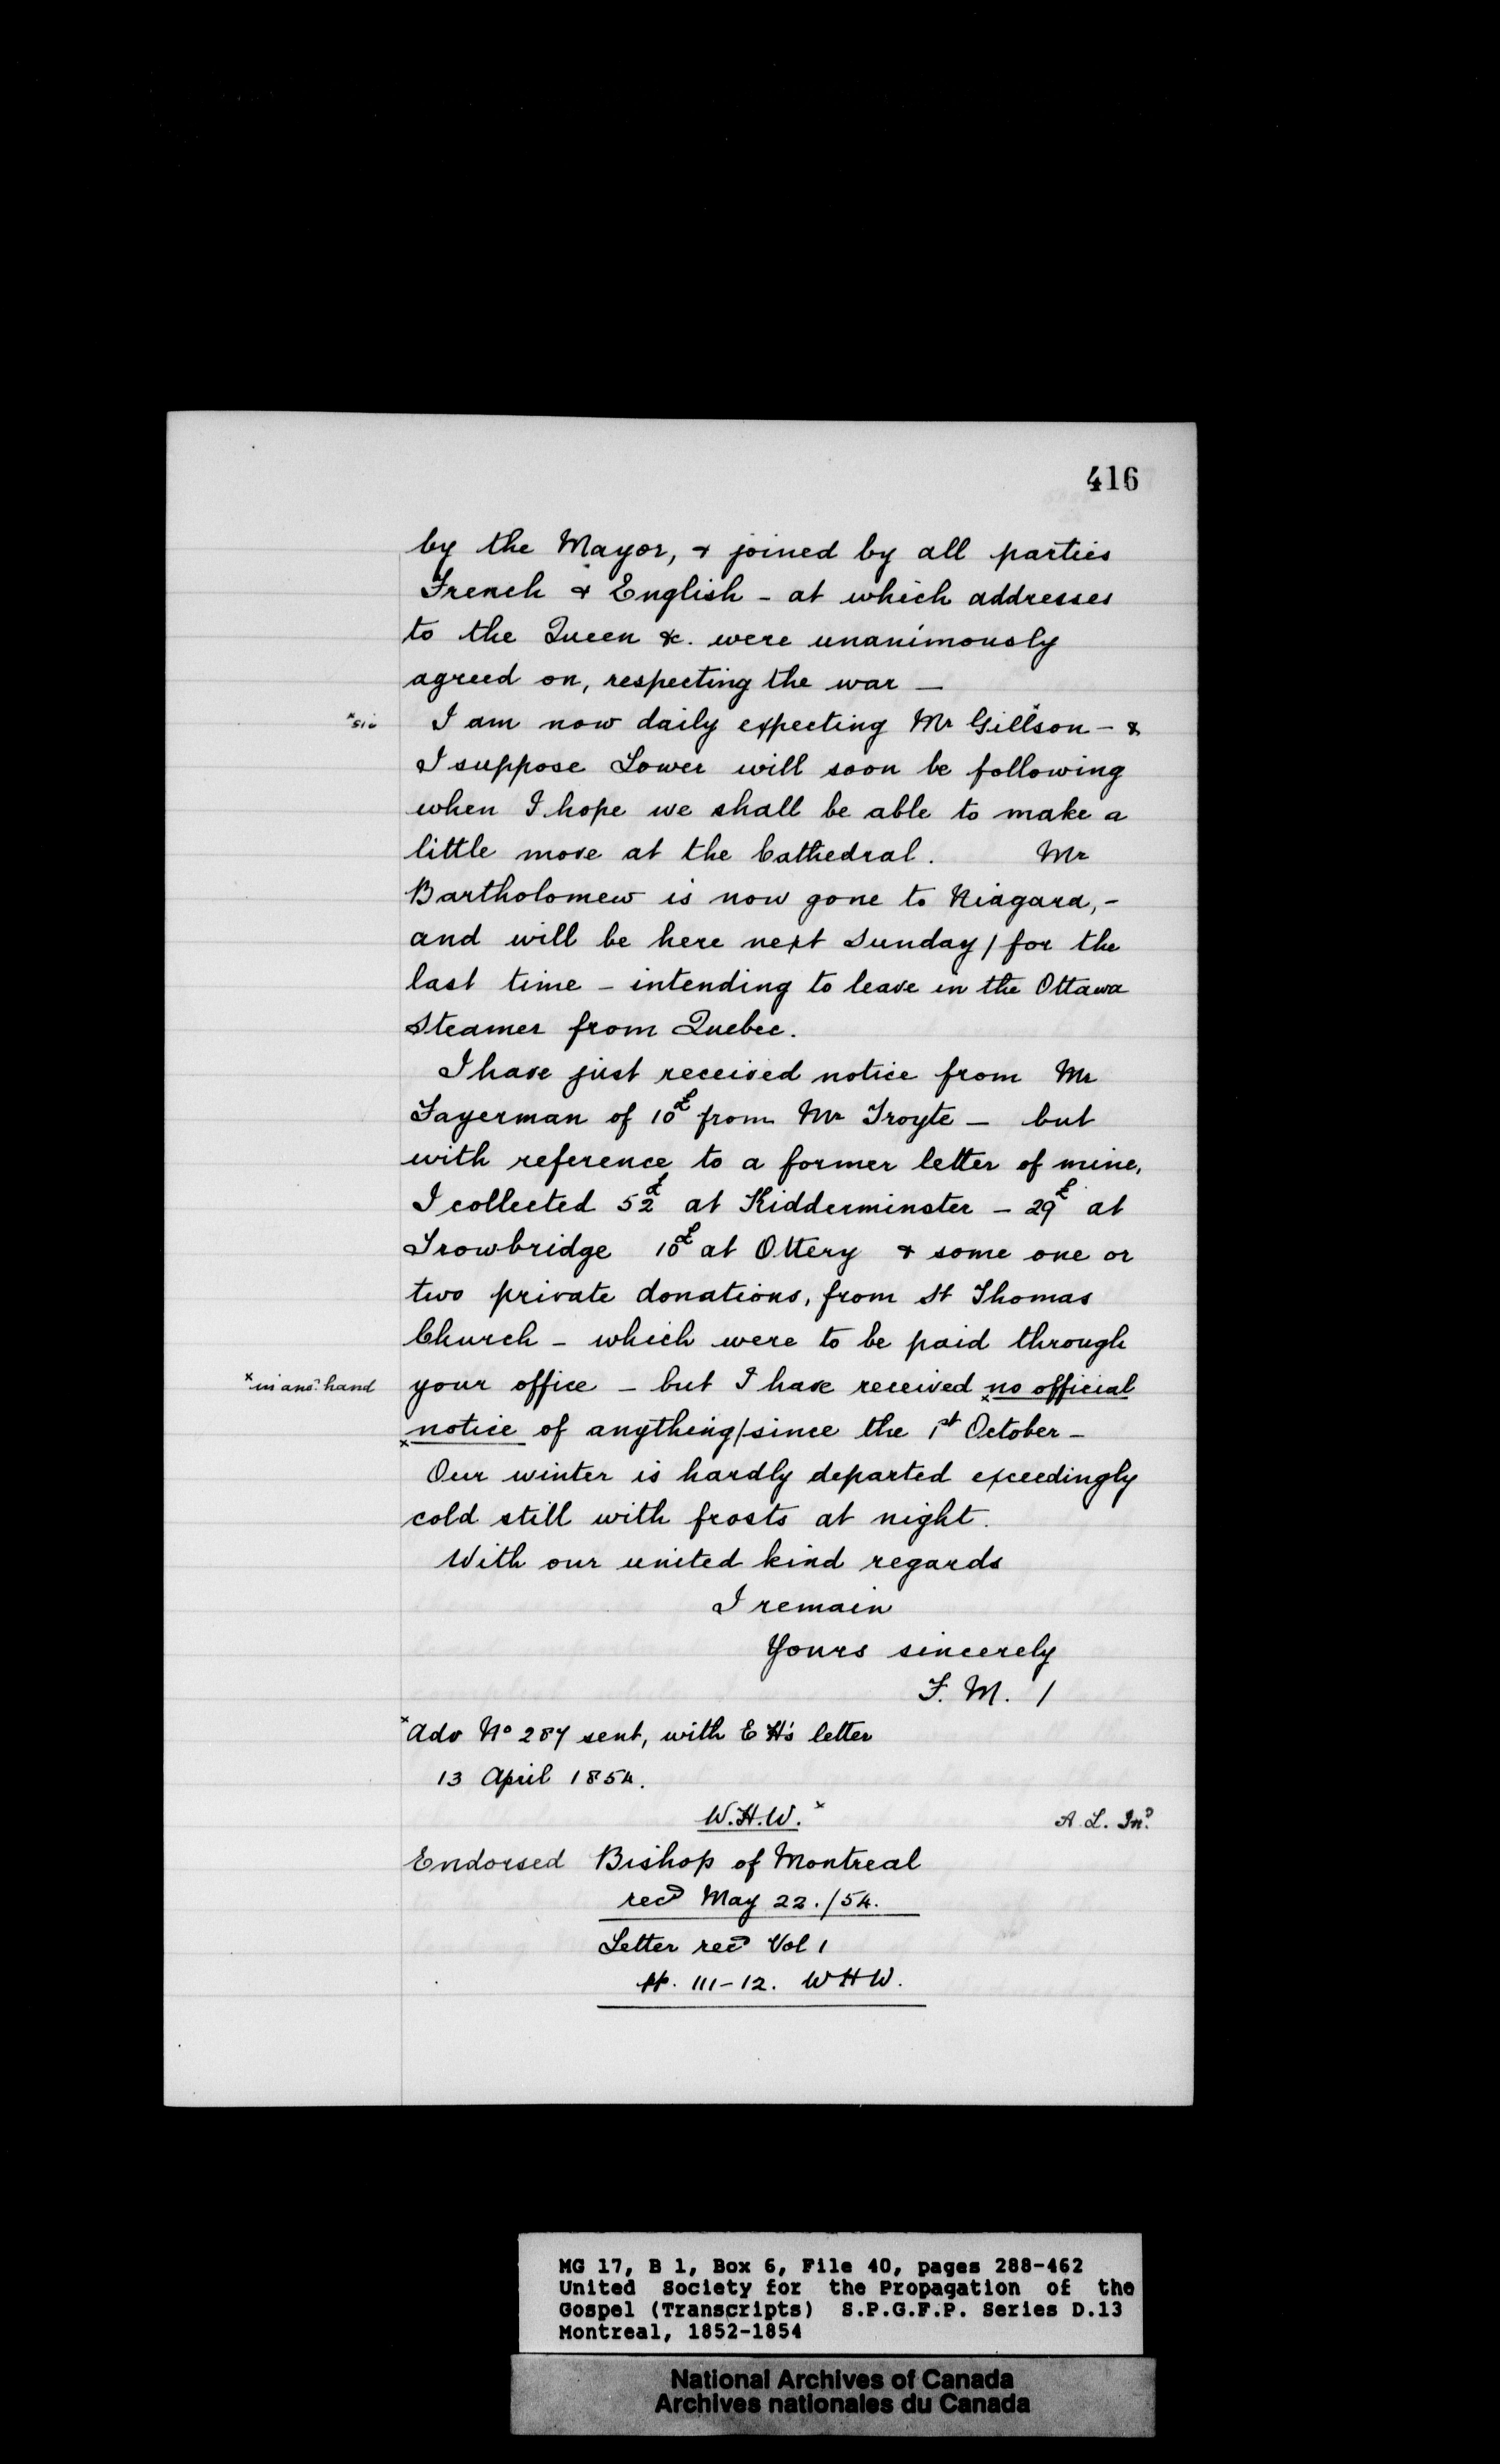 416
by the Mayor, & joined by all parties
French & English - at which addresses
to the Queen &c. were unanimously
agreed on, respecting the war —
×sic I am now daily expecting Mr Gillson× - &
I suppose Lower will soon be following
when I hope we shall be able to make a
little move at the Cathedral. Mr
Bartholomew is now gone to Niagara, -
and will be here next Sunday / for the
last time - intending to leave in the Ottawa
Steamer from Quebec.
I have just received notice from Mr
Fayerman of 10£ from Mr Troyte — but
with reference to a former letter of mine,
I collected 52£ at Kidderminster - 29£ at
Trowbridge 10£ at Ottery & some one or
two private donations, from St Thomas
Church - which were to be paid through
×in anor. hand your office - but I have received ×no official
notice× of anything / since the 1st October -
Our winter is hardly departed exceedingly
cold still with frosts at night.
With our united kind regards
I remain
Yours sincerely
F. M. /
×Adv No 287 sent, with E H's letter
13 April 1854.
W.H.W.× A. L. Ind.
Endorsed Bishop of Montreal
recd May 22./54.
Letter recd Vol 1
pp. 111-12. WHW.
MG 17, B 1, Box 6, File 40, pages 288-462
United Society for the Propagation of the
Gospel (Transcripts) S.P.G.F.P. Series D.13
Montreal, 1852-1854
National Archives of Canada
Archives nationales du Canada